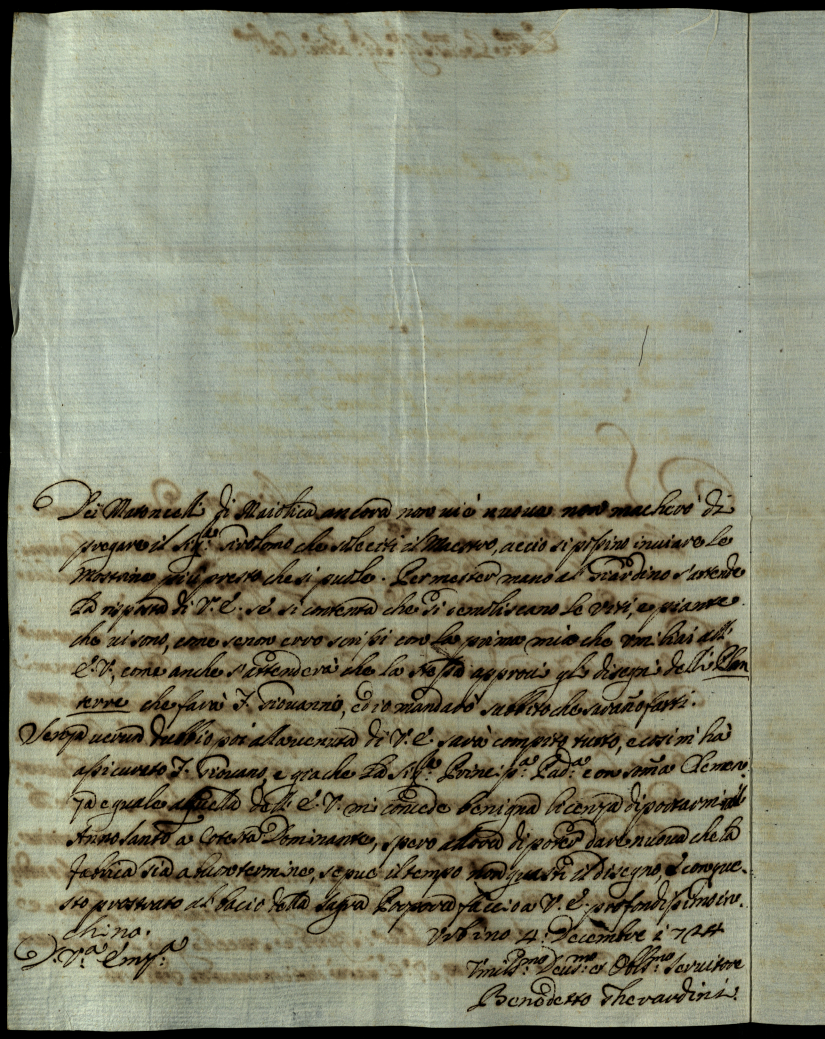 Dei Matoncelli di Maiolica ancora non vi è nuova non mancherò di
pregare il Sig.re Girolomo che soleciti il Maestro, acciò si possino inviare le
Mostrine più presto che si puole. Per metter mano al Giardino s'attende
la risposta di V. E. se si contenta che si demoliscano le viti, e piante
che vi sono, come se non erro scrissi con la prima mia che umiliai all'
E. V, come anche s'attenderà che la stessa approvi gli disegni delli Plan
terre che farà F. Giovanni, ed io mandarò subbito che saraño fatti.
Senza verun dubbio poi alla venuta di V. E. sarà compito tutto, e così mi ha
assicurato F. Giovano, e già che la Sig.ra Princip.a Pad.a con soma Clemen
za eguale a quella dell' E. V. mi concede benigna licenza di portarmi all'
Anno Santo a Cotesta Dominante, spero allora di poter dare nuova che la
fabrica sia a buon termine, se pur il tempo non guasti il disegno, e con que-
sto prostrato al bacio della Sagra Porpora faccio a V. E. profondissimo in-
chino.
Urbino 4: Decembre 1724
D. V.a Em.za
Umiliss.mo Deuot.mo et Obb.mo Servitore
Benedetto Gherardini